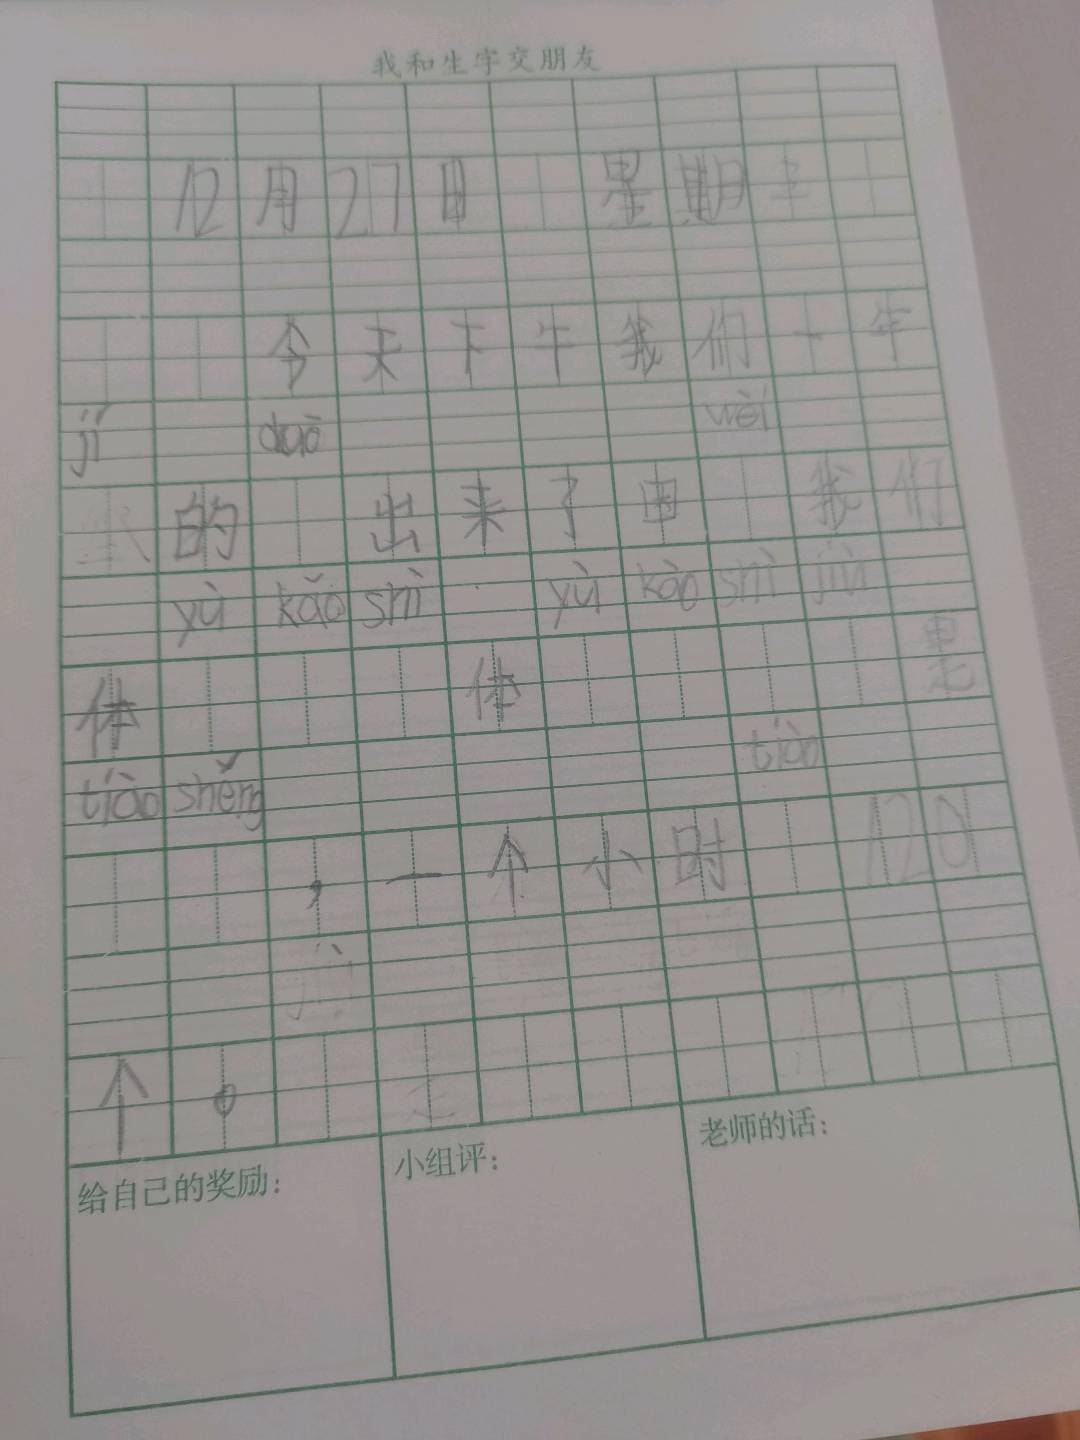 我和生字交朋友
12月27日 星期
今天下午我们一年
jí duō wèi
的 出来了 我们
yù kǎo shì yù kǎo shì jiù
体 体 是
tiào shěng tiào
，一个小时 120
个。
给自己的奖励：
小组评：
老师的话：